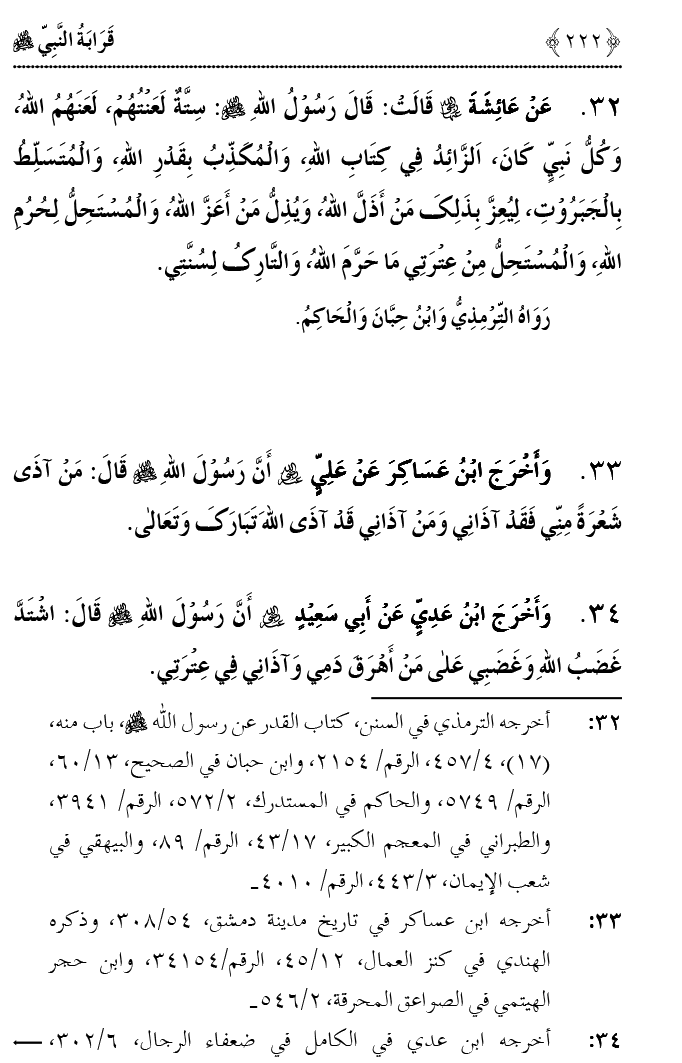 ﴿٢٢٢﴾ قَرَابَةُ النَّبِيِّ ﷺ
٣٢. عَنْ عَائِشَةَ رضي الله عنها قَالَتْ: قَالَ رَسُوْلُ اللهِ ﷺ: سِتَّةٌ لَعَنْتُهُمْ، لَعَنَهُمُ اللهُ،
وَكُلُّ نَبِيٍّ كَانَ، اَلزَّائِدُ فِي كِتَابِ اللهِ، وَالْمُكَذِّبُ بِقَدْرِ اللهِ، وَالْمُتَسَلِّطُ
بِالْجَبَرُوْتِ، لِيُعِزَّ بِذَلِکَ مَنْ أَذَلَّ اللهُ، وَيُذِلُّ مَنْ أَعَزَّ اللهُ، وَالْمُسْتَحِلُّ لِحُرُمِ
اللهِ، وَالْمُسْتَحِلُّ مِنْ عِتْرَتِي مَا حَرَّمَ اللهُ، وَالتَّارِکُ لِسُنَّتِي.
رَوَاهُ التِّرْمِذِيُّ وَابْنُ حِبَّانَ وَالْحَاكِمُ.
٣٣. وَأَخْرَجَ ابْنُ عَسَاكِرَ عَنْ عَلِيٍّ رضي الله عنه أَنَّ رَسُوْلَ اللهِ ﷺ قَالَ: مَنْ آذَى
شَعْرَةً مِنِّي فَقَدْ آذَانِي وَمَنْ آذَانِي قَدْ آذَى اللهَ تَبَارَکَ وَتَعَالٰى.
٣٤. وَأَخْرَجَ ابْنُ عَدِيٍّ عَنْ أَبِي سَعِيْدٍ رضي الله عنه أَنَّ رَسُوْلَ اللهِ ﷺ قَالَ: اشْتَدَّ
غَضَبُ اللهِ وَغَضَبِي عَلٰى مَنْ أَهْرَقَ دَمِي وَآذَانِي فِي عِتْرَتِي.
٣٢: أخرجه الترمذي في السنن، كتاب القدر عن رسول الله ﷺ، باب منه،
(١٧)، ٤/٤٥٧، الرقم/ ٢١٥٤، وابن حبان في الصحيح، ١٣/٦٠،
الرقم/ ٥٧٤٩، والحاكم في المستدرك، ٢/٥٧٢، الرقم/ ٣٩٤١،
والطبراني في المعجم الكبير، ١٧/٤٣، الرقم/ ٨٩، والبيهقي في
شعب الإيمان، ٣/٤٤٣، الرقم/ ٤٠١٠ـ
٣٣: أخرجه ابن عساكر في تاريخ مدينة دمشق، ٥٤/٣٠٨، وذكره
الهندي في كنز العمال، ١٢/٤٥، الرقم/٣٤١٥٤، وابن حجر
الهيتمي في الصواعق المحرقة، ٢/٥٤٦ـ
٣٤: أخرجه ابن عدي في الكامل في ضعفاء الرجال، ٦/٣٠٢، ←